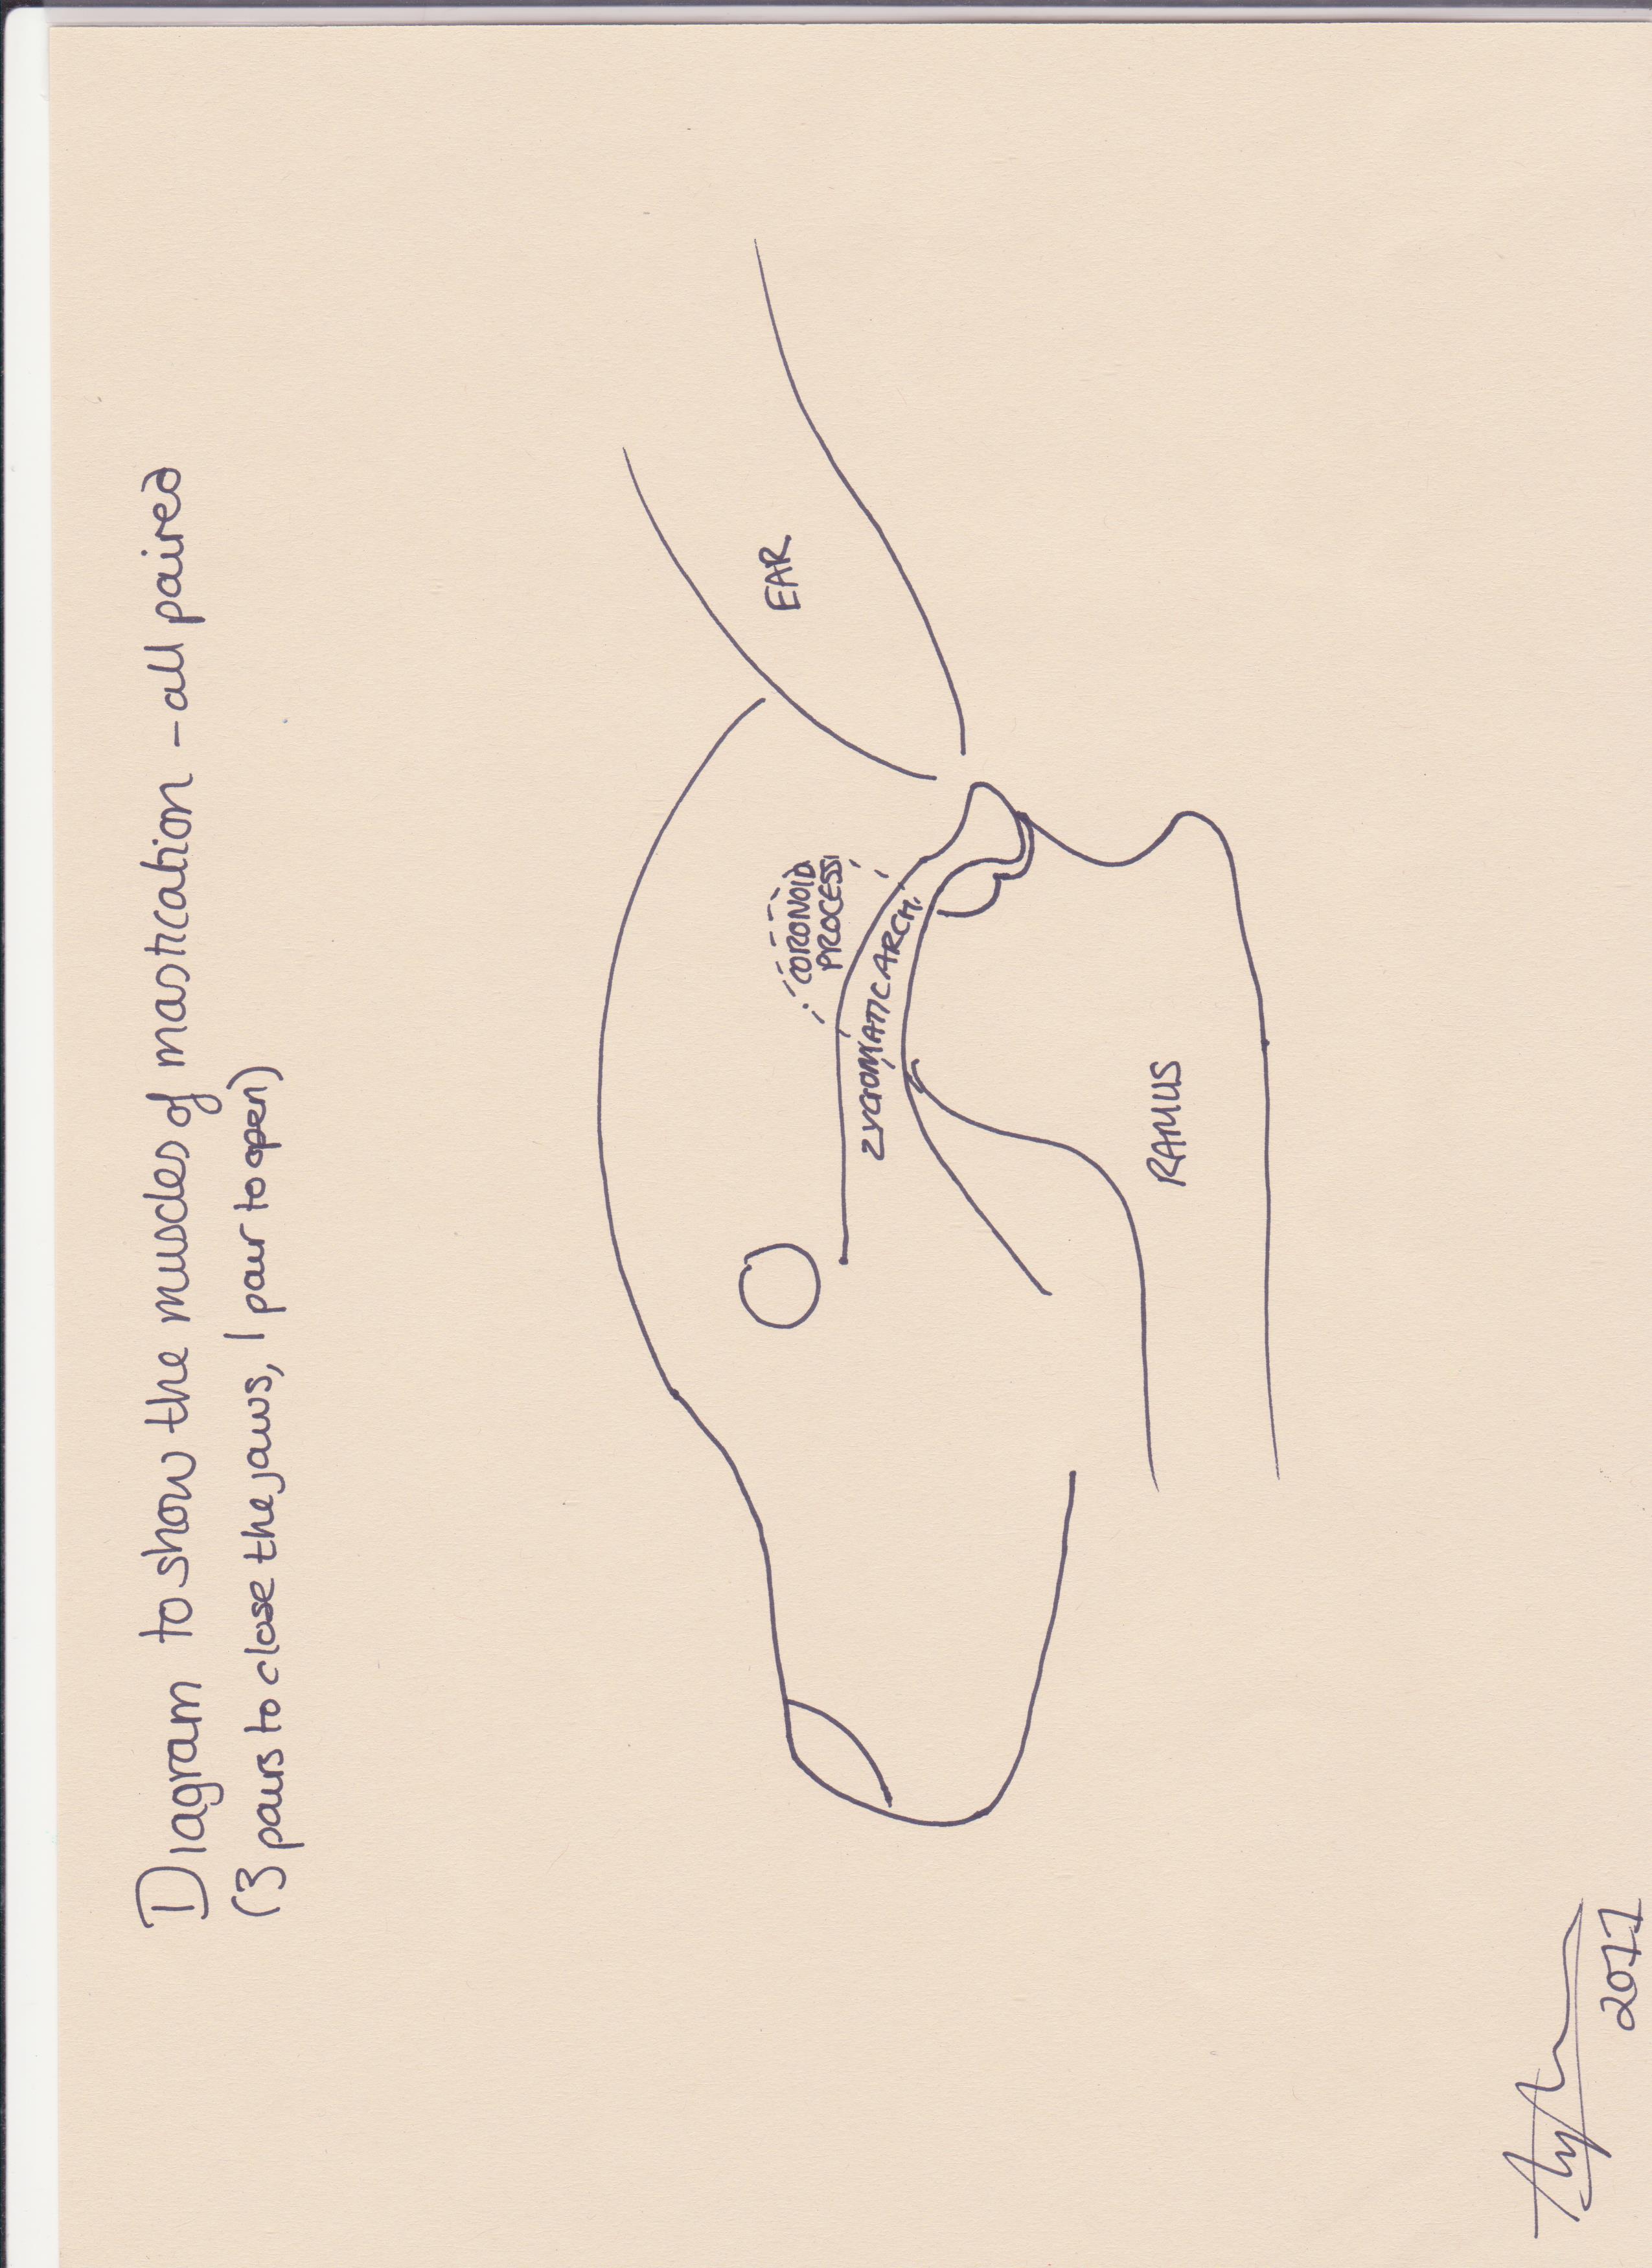 Diagram to show the muscles of mastication - all paired
(3 pairs to close the jaws, 1 pair to open)
EAR
CORONOID
PROCESS
ZYGOMATIC ARCH.
RAMUS
2011